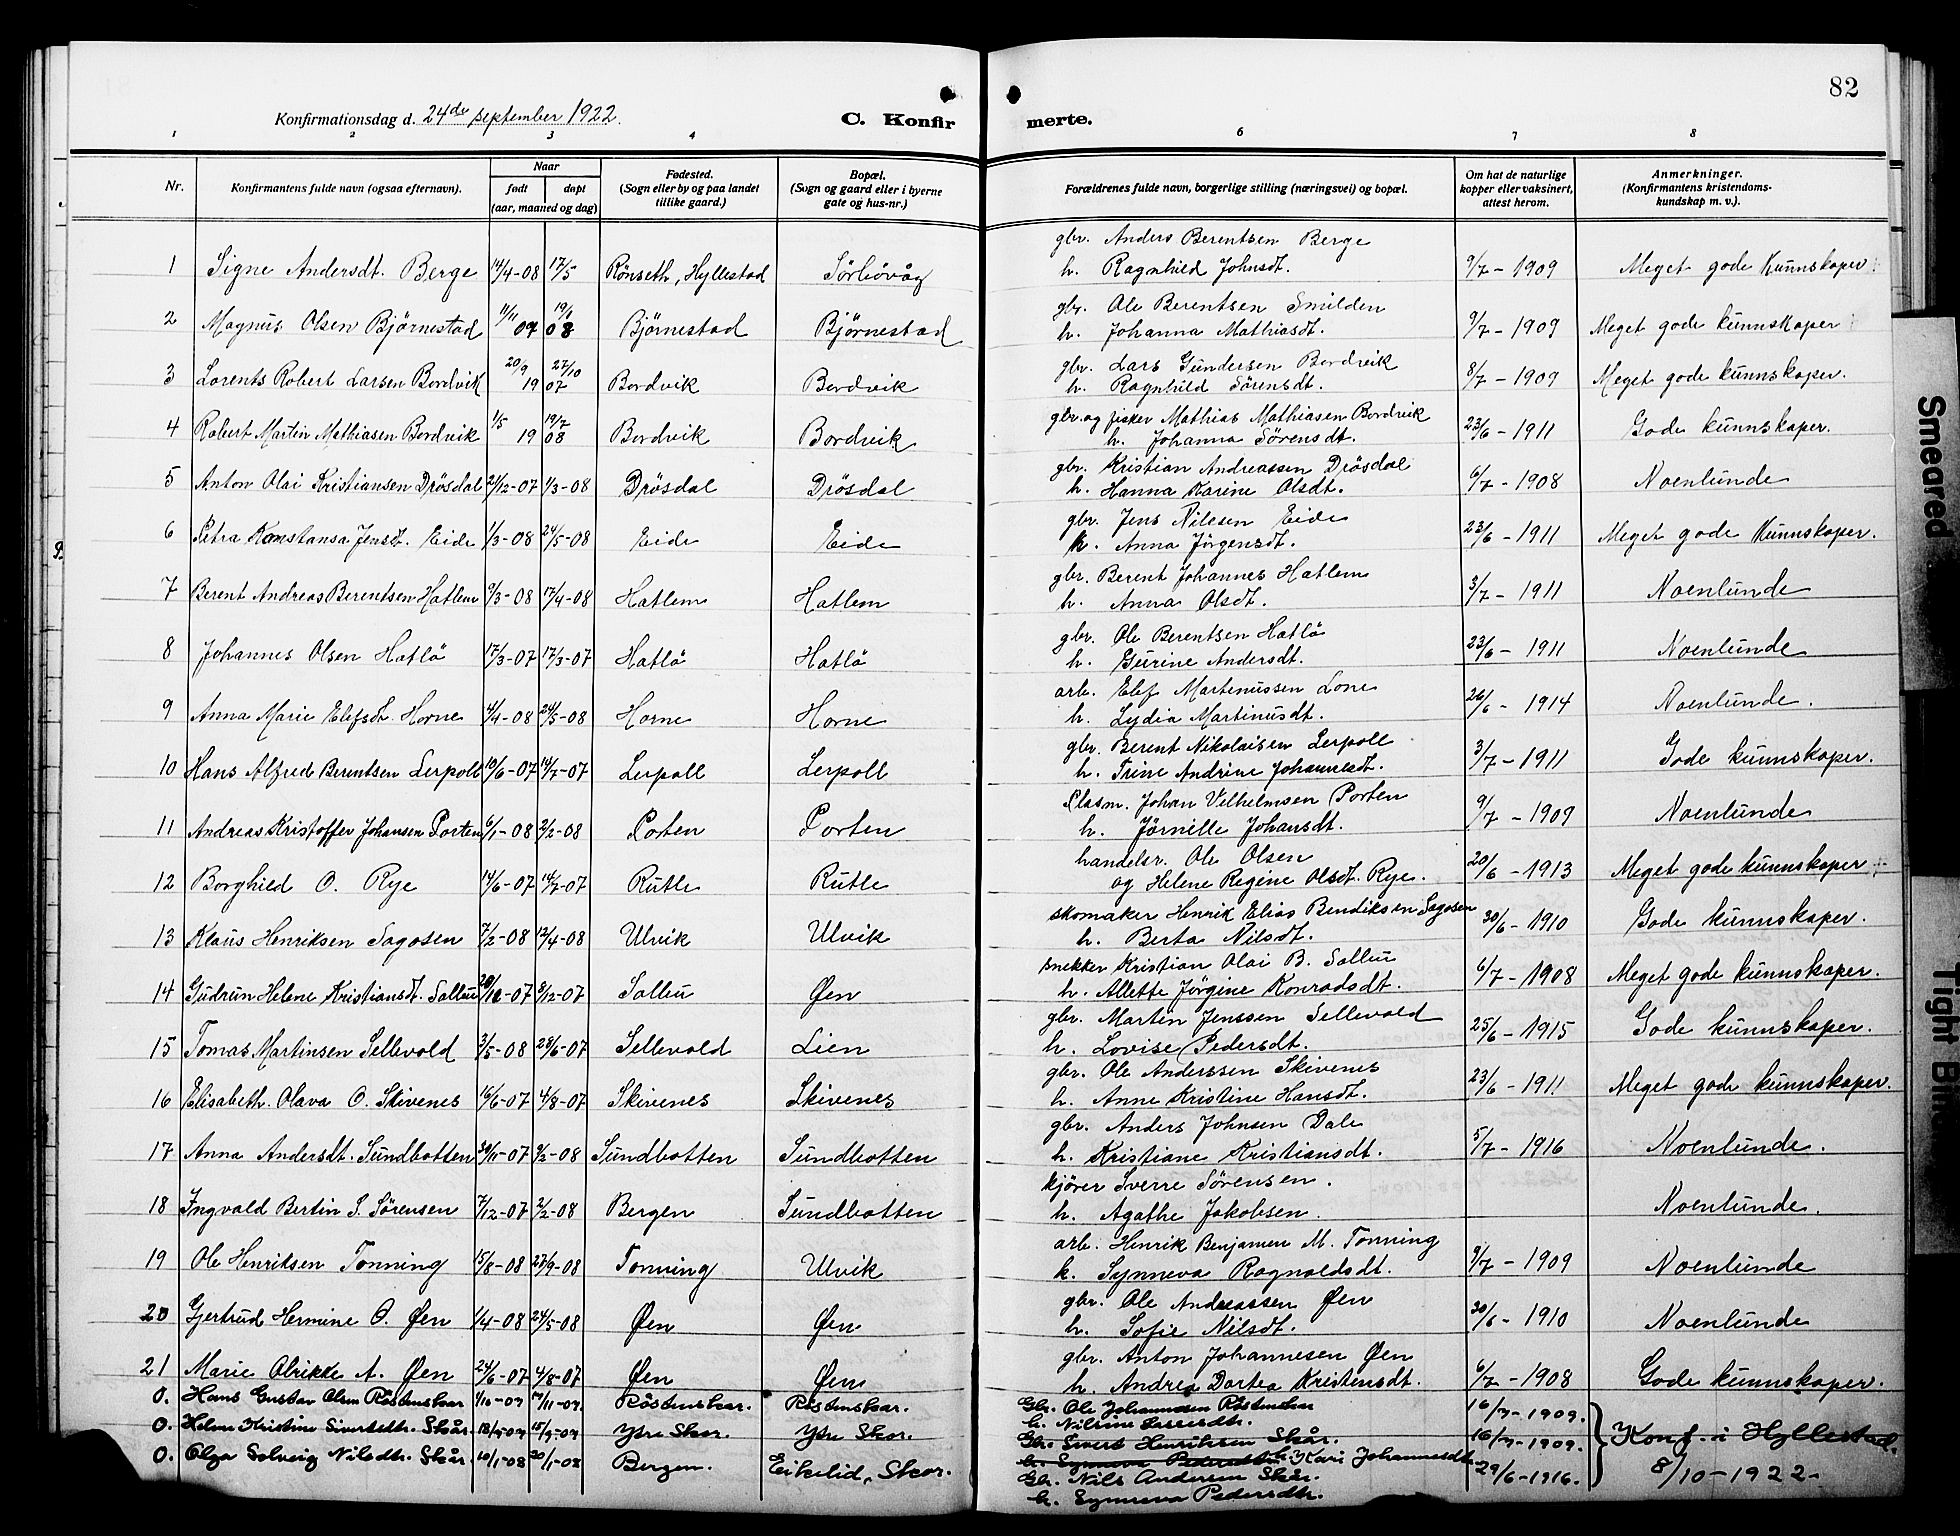 82
Konfirmationsdag d. 24de september 1922.
C. Konfir merte.
1 2 3 4 6 7 8
Nr.
Konfirmantens fulde navn (ogsaa efternavn).
Naar
født døpt
(aar, maaned og dag)
Fødested.
(Sogn eller by og paa landet
tillike gaard.)
Bopæl.
(Sogn og gaard eller i byerne
gate og hus-nr.)
Forældrenes fulde navn, borgerlige stilling (næringsvei) og bopæl.
Om hat de naturlige
kopper eller vaksinert,
attest herom.
Anmerkninger.
(Konfirmantens kristendoms-
kundskap m. v.).
gbr. Anders Berentsen Berge
1 Signe Andersdt. Berge 14/4-08 17/5 Rönseth, Hyllestad Sörbövåg h. Ragnhild Johnsdt. 9/7-1909 Meget gode kunnskaper
gbr. Ole Berentsen Smilden
2 Magnus Olsen Björnestad 11/11 07 19/1 08 Björnestad Björnestad h. Johanna Mathiasdt. 9/7-1909 Meget gode kunnskaper
gbr. Lars Gundersen Bordvik
3 Lorents Robert Larsen Bordvik 20/9 19 27/10 07 Bordvik Bordvik h. Ragnhild Sörensdt. 8/7-1909 Meget gode kunnskaper.
gbr. og fisker Mathias Mathiasen Bordvik
4 Robert Martin Mathiasen Bordvik 1/5 19 19/7 08 Bordvik Bordvik h. Johanna Sörensdt. 23/6-1911 Gode kunnskaper.
gbr. Kristian Andreassen Drösdal
5 Anton Olai Kristiansen Drösdal 21/12-07 1/3-08 Drösdal Drösdal h. Hanna Karine Olsdt. 6/7-1908 Noenlunde
gbr. Jens Nilsen Eide
6 Petra Konstansa Jensdt. Eide 1/3-08 24/5-08 Eide Eide h. Anna Jörgensdt. 23/6-1911 Meget gode kunnskaper.
gbr. Berent Johannes Hatlem
7 Berent Andreas Berentsen Hatlem 9/3-08 17/4-08 Hatlem Hatlem h. Anna Olsdt. 3/7-1911 Noenlunde
gbr. Ole Berentsen Hatlö
8 Johannes Olsen Hatlö 17/3-07 17/3-07 Hatlö Hatlö h. Gurine Andersdt. 23/6-1911 Noenlunde
arb. Elef Martenussen Lone
9 Anna Marie Elefsdt. Horne 4/4-08 24/5-08 Horne Horne h. Lydia Martinusdt. 26/6-1914 Noenlunde.
gbr. Berent Nikolaisen Lerpoll
10 Hans Alfred Berentsen Lerpoll 10/6-07 14/7-07 Lerpoll Lerpoll h. Trine Andrine Johannesdt. 3/7-1911 Gode kunnskaper.
Plasm. Johan Vilhelmsen Porten
11 Andreas Kristoffer Johansen Porten 6/1-08 2/2-08 Porten Porten h. Jörnille Johansdt. 9/7-1909 Noenlunde
handelsr. Ole Olsen
12 Borghild O. Rye 14/6-07 14/7-07 Rutle Rutle og Helene Regine Olsdt. Rye. 20/6-1913 Meget gode kunnskaper
skomaker Henrik Elias Bendiksen Sagosen
13 Klaus Henriksen Sagosen 7/2-08 12/4-08 Ulvik Ulvik h. Berta Nilsdt. 30/6-1910 Gode kunnskaper.
snekker Kristian Olai B. Solleu
14 Gudrun Helene Kristiansdt. Solleu 20/10-07 8/12-07 Solleu Øen h. Allette Jörgine Konradsdt. 6/7-1908 Meget gode kunnskaper.
gbr. Martin Jenssen Sellevold
15 Tomas Martinsen Sellevold 3/5-08 28/6-07 Sellevold Lien h. Lovise Pedersdt. 25/6-1915 Gode kunnskaper.
gbr. Ole Anderssen Skivenes
16 Elisabeth. Olava O. Skivenes 16/6-07 4/8-07 Skivenes Skivenes h. Anne Kristine Hansdt. 23/6-1911 Meget gode kunnskaper.
gbr. Anders Johnsen Dale
17 Anna Andersdt. Sundbotten 30/11-07 9/2-08 Sundbotten Sundbotten h. Kristiane Kristiansdt. 5/7-1916 Noenlunde.
kjörer Sverre Sörensen.
18 Ingvald Bertin S. Sörensen 7/12-07 2/2-08 Bergen Sundbotten h. Agathe Jakobsen. Noenlunde.
arb. Henrik Benjamen M. Tonning
19 Ole Henriksen Tonning 15/8-08 27/9-08 Tonning Ulvik h. Synneva Ragnaldsdt. 9/7-1909 Noenlunde
gbr. Ole Andreassen Øen
20 Gjertrud Hermine O. Øen 1/4-08 24/5-08 Øen Øen h. Sofie Nilsdt. 30/6-1910 Noenlunde
gbr. Anton Johannesen Øen
21 Marie Olrikke A. Øen 24/6-07 4/8-07 Øen Øen h. Andrea Dortea Kristensdt. 6/7-1908 Gode kunnskaper.
0. Hans Gustav Olsen Röstenskar 1/10-07 17/11-07. Röstenskar. Röstenskar. Gbr. Ole Johannesen Röstenskar 16/7-1909.
h. Nilsine Larsdtr.
0. Helene Kristine Sivertsdtr. Skår. Ytre Skor. Ytre Skor. Gbr. Sivert Henriksen Skår. 16/7-1909. Konf. i Hyllestad.
h. Synneva Pedersdtr. Kari Johannesdtr
0. Olga Solveig Nilsdtr. Skår. 10/1-08 20/1-08 Bergen. Eikelid, Skor. Gbr. Nils Andersen Skår. 29/6-1916. 8/10-1922-
h. Synneva Pedersdtr.
Smeared
Tight Bin